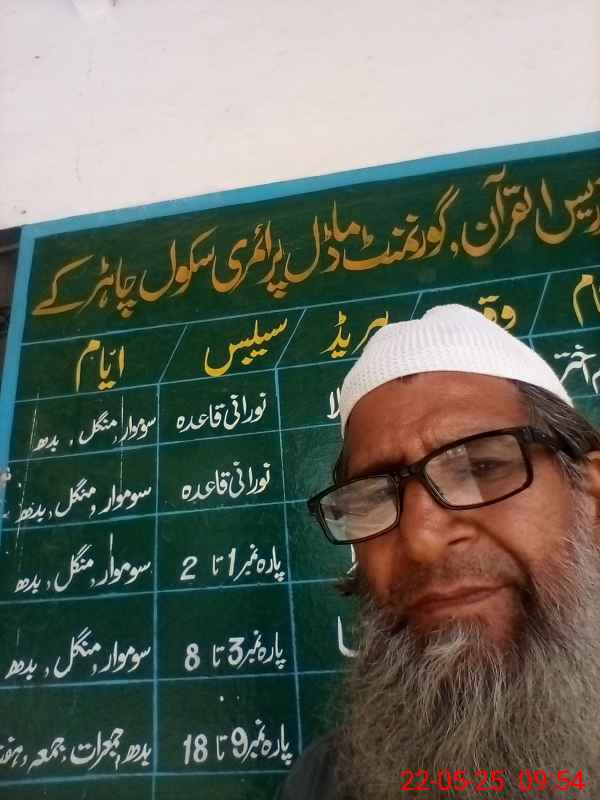 القرآن، گورنمنٹ ماڈل پرائمری سکول چاہڑ کے
پریڈ سیلیبس ایّام
نورانی قاعدہ سوموار، منگل، بدھ
نورانی قاعدہ سوموار، منگل، بدھ
پارہ نمبر 1 تا 2 سوموار، منگل، بدھ
پارہ نمبر 3 تا 8 سوموار، منگل، بدھ
پارہ نمبر 9 تا 18 بدھ، جمعرات، جمعہ،
22-05-25 09:54